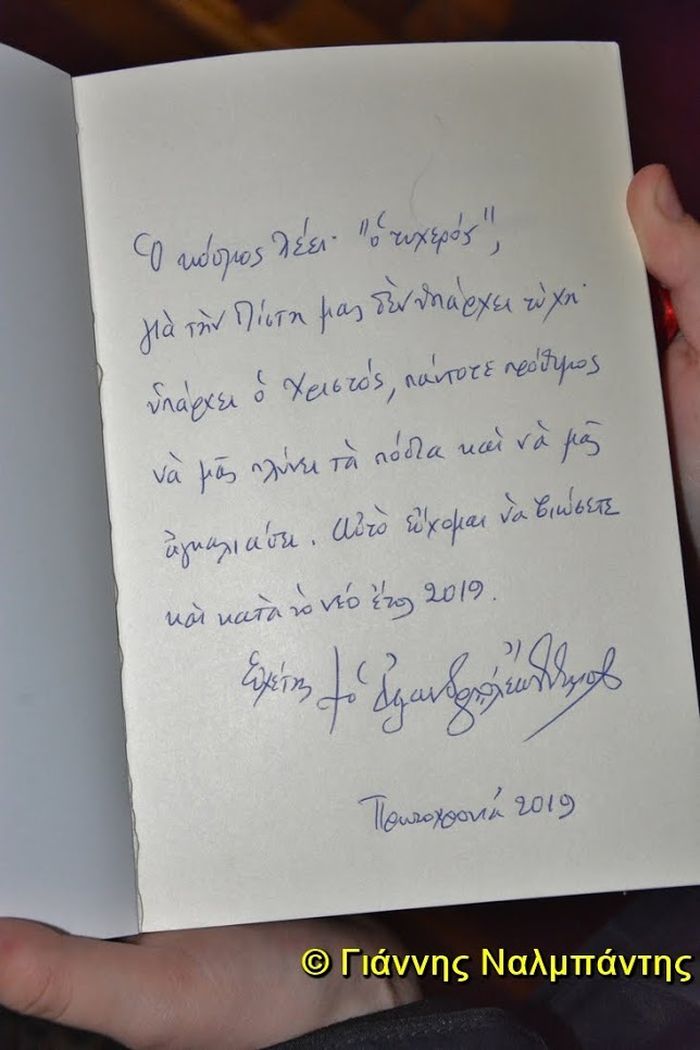 Ὁ κόσμος λέει· "ὁ τυχερός",
γιὰ τὴν Πίστη μας δὲν ὑπάρχει τύχη·
ὑπάρχει ὁ Χριστός, πάντοτε πρόθυμος
νὰ μᾶς πλύνει τὰ πόδια καὶ νὰ μᾶς
ἀγκαλιάσει. Αὐτὸ εὔχομαι νὰ βιώσετε
καὶ κατὰ τὸ νέο ἔτος 2019.
Εὐχέτης † ὁ Ἀλεξανδρουπόλεως Ἄνθιμος
Πρωτοχρονιά 2019
© Γιάννης Ναλμπάντης